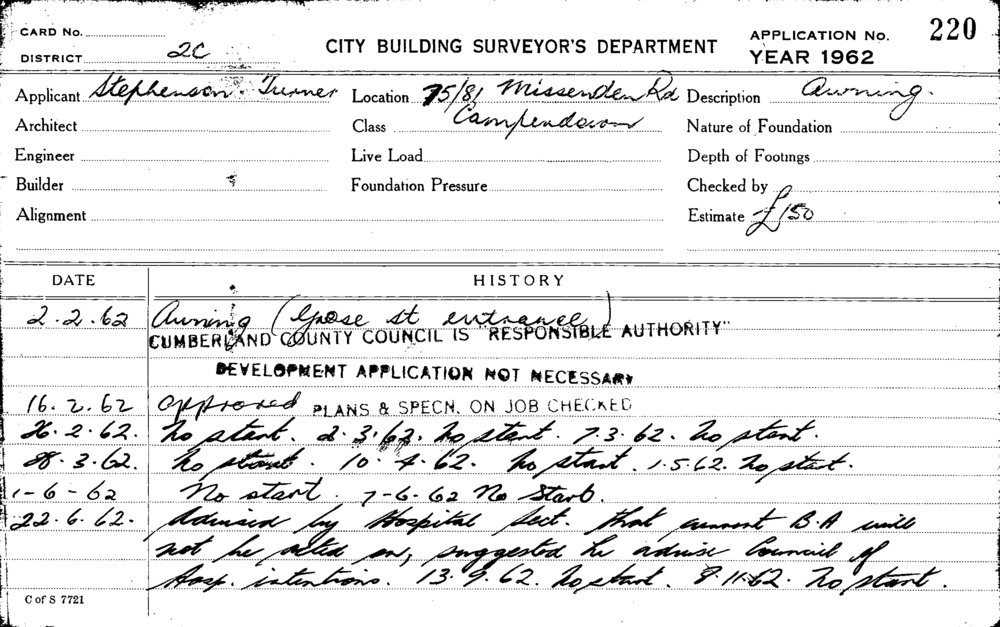 CARD No.
DISTRICT 2C
CITY BUILDING SURVEYOR'S DEPARTMENT
APPLICATION No. 220
YEAR 1962
Applicant Stephenson & Turner Location 75/81 Missenden Rd Description Awning.
Architect Class Camperdown Nature of Foundation
Engineer Live Load Depth of Footings
Builder Foundation Pressure Checked by
Alignment Estimate £150
DATE HISTORY
2.2.62 Awning (Grose st entrance)
CUMBERLAND COUNTY COUNCIL IS "RESPONSIBLE AUTHORITY"
DEVELOPMENT APPLICATION NOT NECESSARY
16.2.62 approved PLANS & SPECN. ON JOB CHECKED
26.2.62. No start. 2.3.62. No start. 7.3.62. No start.
8.3.62. No start. 10.4.62. No start. 1.5.62. No start.
1-6-62 No start. 7-6-62 No Start.
22.6.62. Advised by Hospital Sect. that B.A will
not be acted on, suggested he advise Council of
Hosp. intentions. 13.9.62. No start. 9.11.62. No start.
C of S 7721